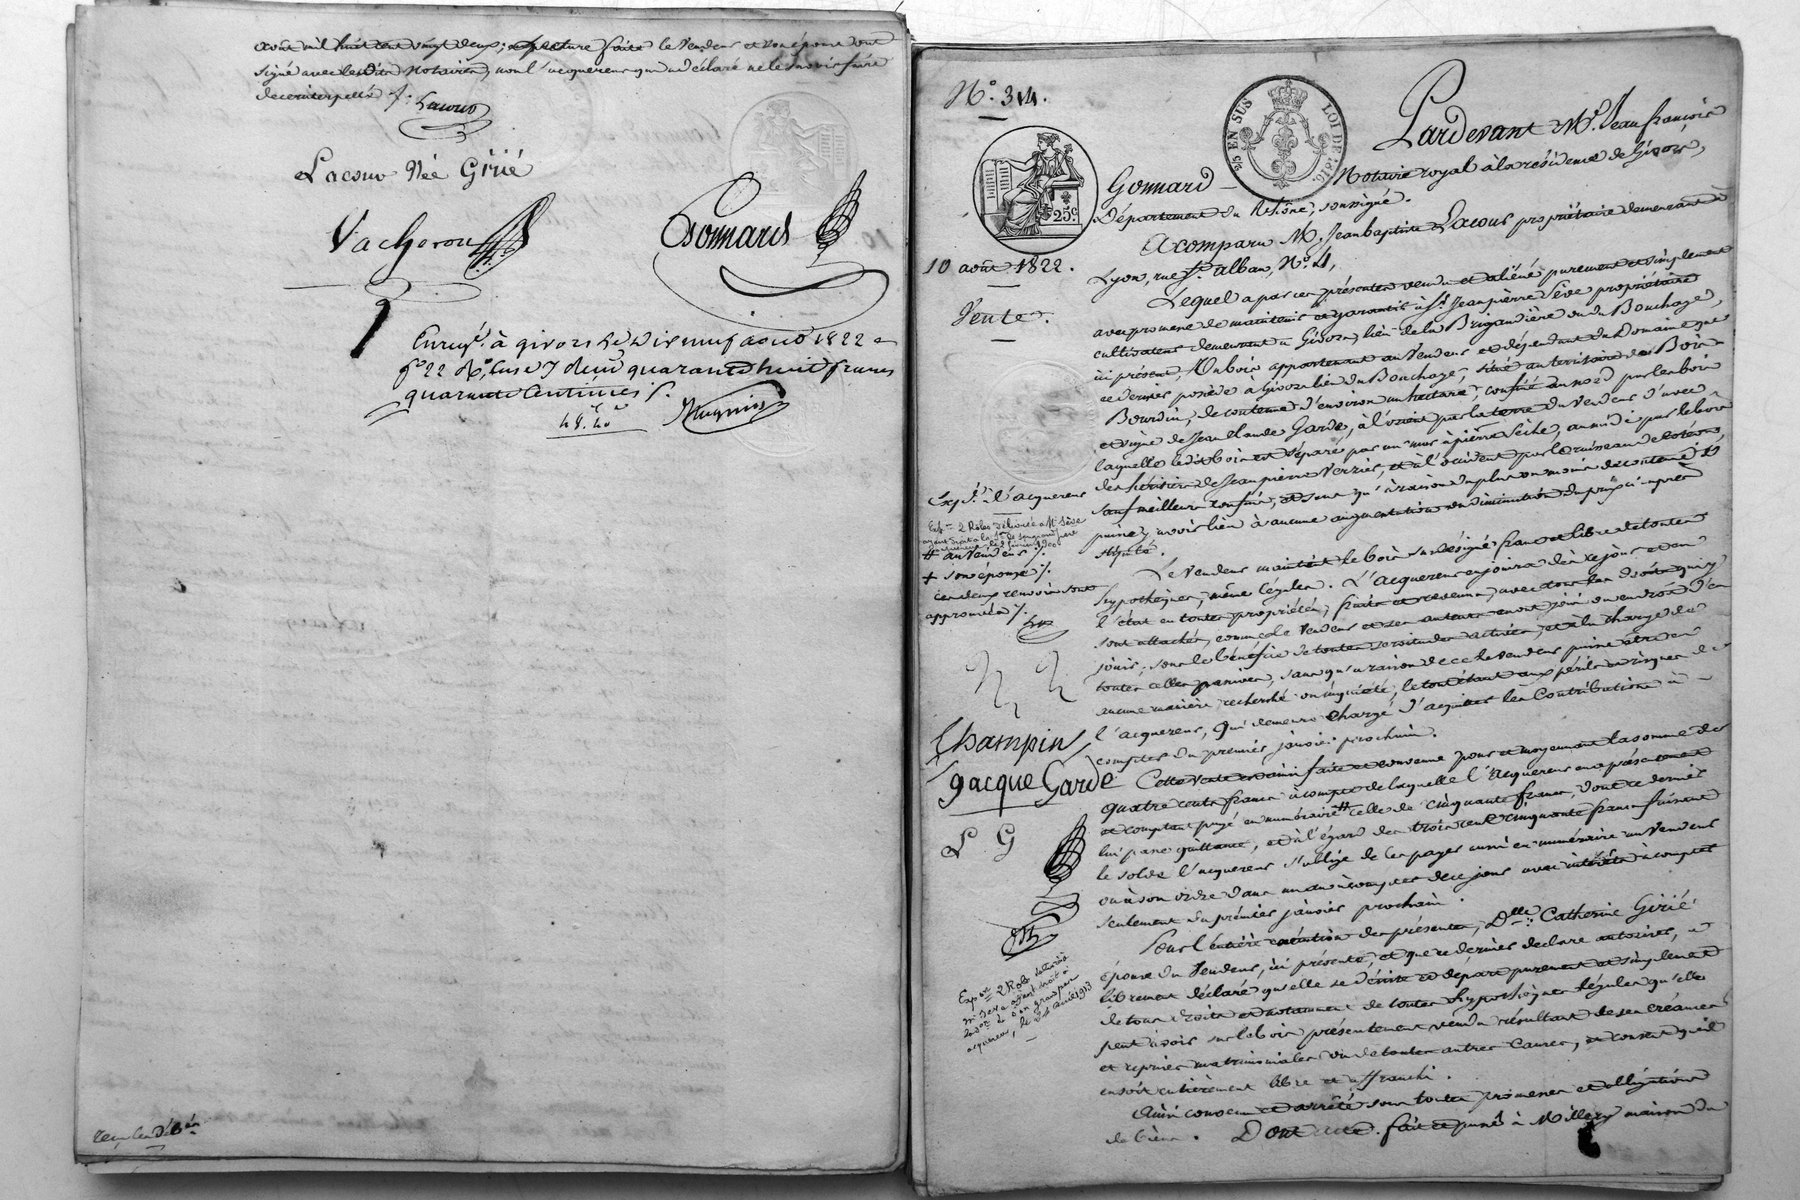 août mil huit cent vingt deux; lecture faite le vendeur et son épouse ont
signé avec les dits notaires, non l'acquereur qui a déclaré ne le savoir faire
de ce interpellé
Lacour
Lacour Née Girié
Vacheron
Gonnard
Enreg. à givors le dix neuf août 1822
fo 22 Ro, Case 7 reçu quarante huit francs
quarante Centimes
48. 40
N°. 314.
25 EN SUS LOI DE 1816
25c
10 août 1822.
Vente.
Pardevant Me. Jean françois
Gonnard Notaire royal à la résidence de Givors,
Département du Rhône, soussigné.
A comparu M. Jean baptiste Lacour propriétaire demeurant à
Lyon, rue St. alban, N°. 4,
Lequel a par ces présentes vendu et aliéné purement et simplement
avec promesse de maintenir et garantir à Sr. Jean pierre Sève propriétaire
cultivateur demeurant à Givors, lieu de la Brigandière ou du Bouchage,
ici présent, Un bois appartenant au Vendeur et dépendant du Domaine que
ce dernier possède à Givors lieu du Bouchage, situé au territoire du Bois
Bourdin, de contenue d'environ un hectare, confiné au nord par les bois
et vigne de Jean Claude Garde, à l'orient par la terre du Vendeur d'avec
laquelle le dit bois est séparé par un mur à pierre Sèche, au midi par le bois
des héritiers de Jean pierre Verzier, et à l'occident par le ruisseau de
sauf meilleurs confins, et sans qu'à raison du plus ou moins de contenue il
puisse y avoir lieu à aucune augmentation ou diminution du prix ci-après
stipulé.
Le Vendeur maintient le bois sus désigné franc et libre de toutes
hypothèques, même légales. L'acquereur en jouira dès ce jour et en
l'état en toute propriété, fruits et revenus, avec tous les droits qui y
sont attachés, comme le Vendeur et ses auteurs en ont joui ou eu droit d'en
jouir, sous le bénéfice de toutes servitudes actives, et à la charge de
toutes celles passives, sans qu'à raison de ce le vendeur puisse être en
aucune manière recherché ou inquiété, le tout étant aux périls et risques de
l'acquereur, qui demeure chargé d'acquitter les Contributions à
compter du premier janvier prochain.
Cette vente est ainsi faite et convenue pour et moyennant la somme de
quatre cents francs à compte de laquelle l'acquereur en a présentement
et comptant payé en numéraire # celle de cinquante francs, dont ce dernier
lui passe quittance, et à l'égard des trois cent cinquante francs faisant
le solde l'acquereur s'oblige de les payer aussi en numéraire au Vendeur
ou à son ordre dans un an à compter de ce jour avec intérêts à compter
seulement du premier janvier prochain.
Pour l'entière exécution des présentes, Delle. Catherine Girié
épouse du Vendeur, ici présente, et que ce dernier déclare autoriser, a
librement déclaré qu'elle se désiste et départ purement et simplement
de tous droits et notamment de toutes hypothèques légales qu'elle
peut avoir sur le bois présentement vendu résultant de ses créances
et reprises matrimoniales ou de toutes autres causes, et consent qu'il
en soit entièrement libre et affranchi.
Ainsi convenu et arrêté sous toutes promesses et obligations
de biens. Dont acte. fait et passé à Millery maison du
Exp. à l'acquereur
# au Vendeur
+ son épouse
ces deux renvois sont
approuvés
Champin
Jacque Garde
L G